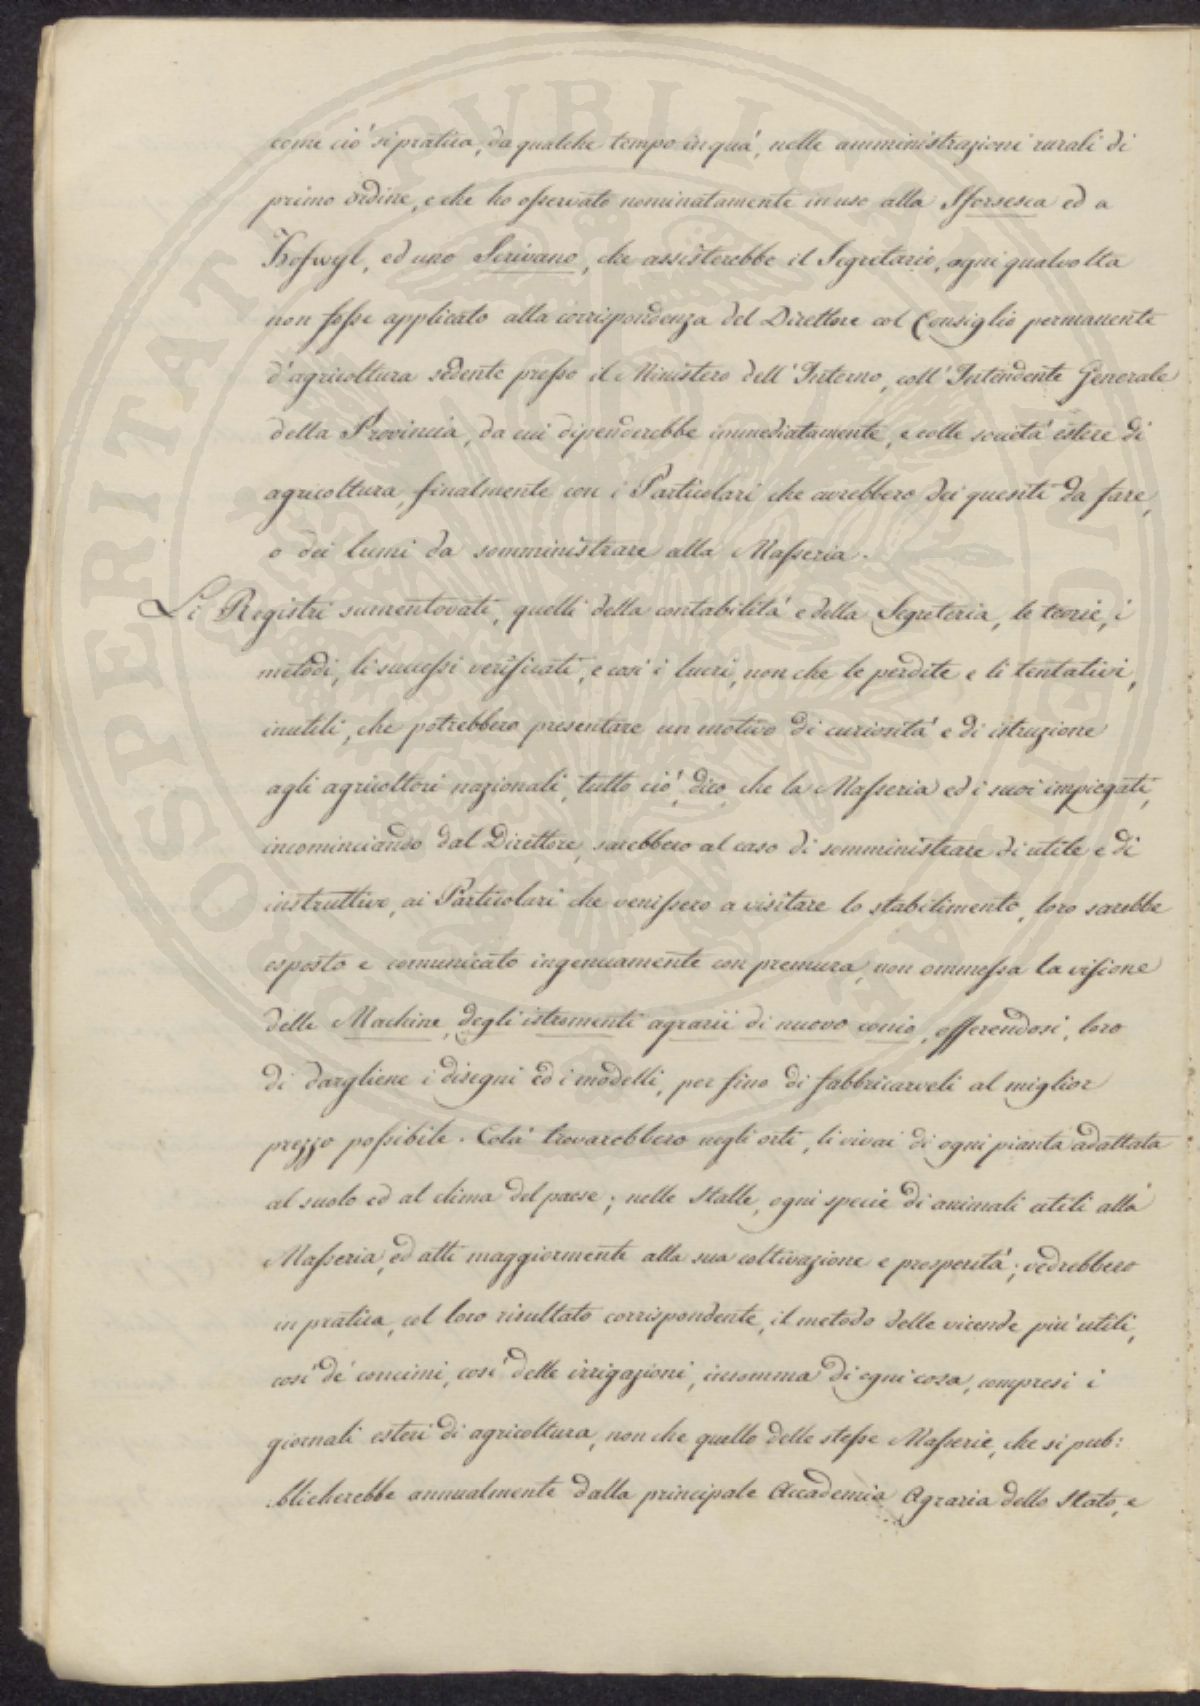 come ciò si pratica, da qualche tempo in quà, nelle amministrazioni rurali di
primo ordine, e che ho osservato nominatamente in uso alla Sforsesca ed a
Hofwyl, ed uno Scrivano, che assisterebbe il Segretario, ogni qualvolta
non fosse applicato alla corrispondenza del Direttore col Consiglio permanente
d'agricoltura sedente presso il Ministero dell'Interno, coll'Intendente Generale
della Provincia, da cui dipenderebbe immediatamente, e colle società estere di
agricoltura, finalmente con i Particolari che avrebbero dei quesiti da fare,
o dei lumi da somministrare alla Masseria.
Li Registri surmentovati, quelli della contabilità e della Segreteria, le teorie, i
metodi, li successi verificati, e così i lucri, non che le perdite e li tentativi,
inutili, che potrebbero presentare un motivo di curiosità e di istruzione
agli agricoltori nazionali, tutto ciò, dico, che la Masseria ed i suoi impiegati,
incominciando dal Direttore, sarebbero al caso di somministrare di utile e di
instruttivo, ai Particolari che venissero a visitare lo stabilimento, loro sarebbe
esposto e comunicato ingenuamente con premura, non ommessa la visione
delle Machine, degli istromenti agrarii di nuovo conio, offerendosi, loro
di dargliene i disegni ed i modelli, per fino di fabbricarveli al miglior
prezzo possibile. Colà trovarebbero negli orti, li vivai di ogni pianta adattata
al suolo ed al clima del paese; nelle stalle, ogni specie di animali utili alla
Masseria, ed atti maggiormente alla sua coltivazione e prosperità; vedrebbero
in pratica, col loro risultato corrispondente, il metodo delle vicende più utili,
così de' concimi, così delle irrigazioni, insomma di ogni cosa, compresi i
giornali esteri di agricoltura, non che quello delle stesse Masserie, che si pub:
blicherebbe annualmente dalla principale Accademia Agraria dello Stato, e
PROSPERITATI PVBLICAE